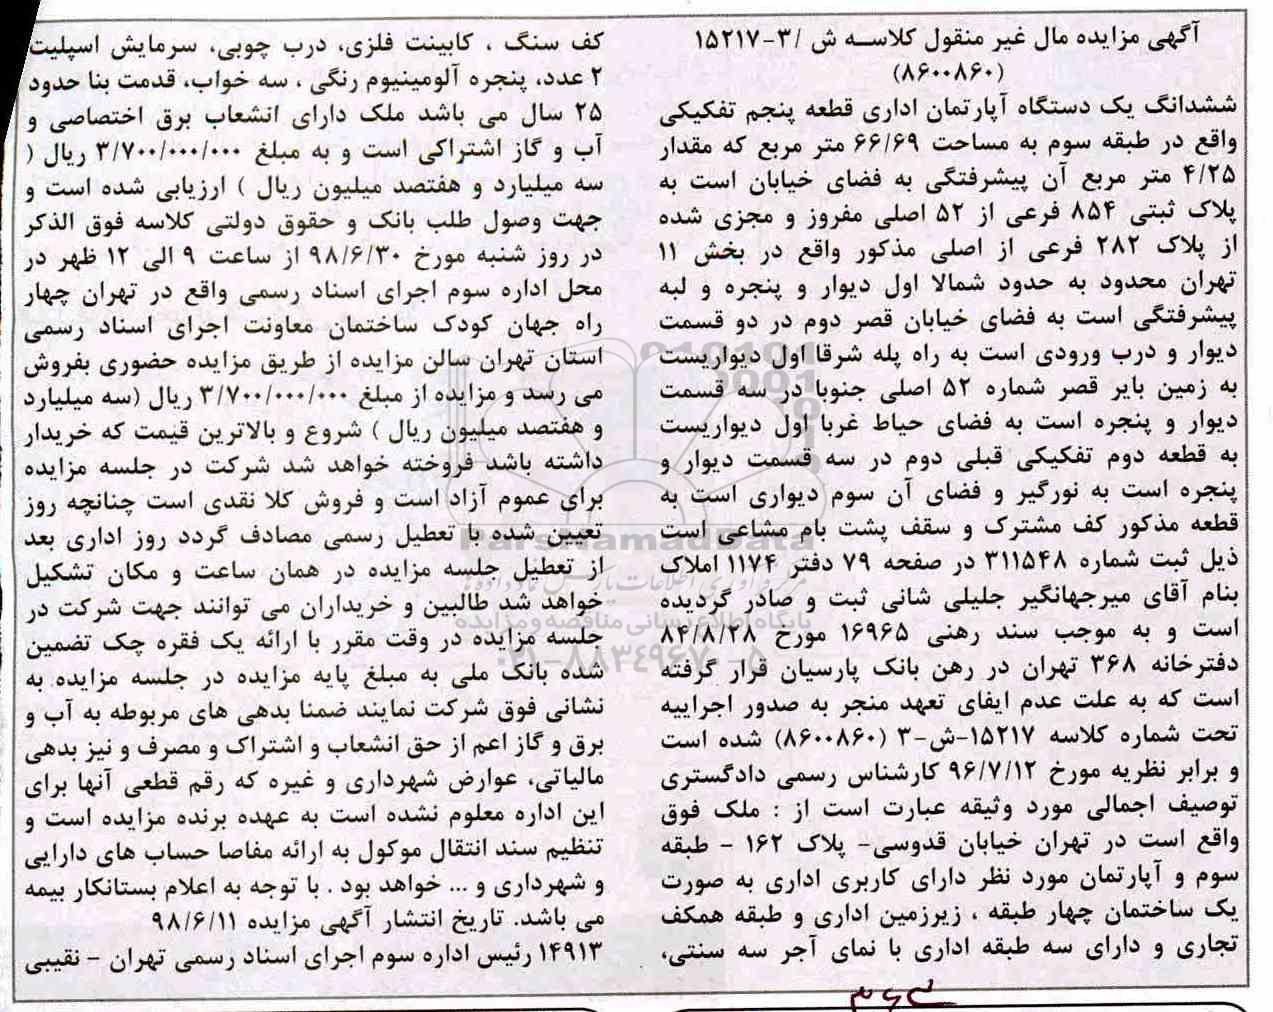 آگهی مزایده مال غیر منقول کلاسه ش /۳-۱۵۲۱۷
(۸۶۰۰۸۶۰)
ششدانگ یک دستگاه آپارتمان اداری قطعه پنجم تفکیکی
واقع در طبقه سوم به مساحت ۶۶/۶۹ متر مربع که مقدار
۴/۲۵ متر مربع آن پیشرفتگی به فضای خیابان است به
پلاک ثبتی ۸۵۴ فرعی از ۵۲ اصلی مفروز و مجزی شده
از پلاک ۲۸۲ فرعی از اصلی مذکور واقع در بخش ۱۱
تهران محدود به حدود شمالا اول دیوار و پنجره و لبه
پیشرفتگی است به فضای خیابان قصر دوم در دو قسمت
دیوار و درب ورودی است به راه پله شرقا اول دیواریست
به زمین بایر قصر شماره ۵۲ اصلی جنوبا در سه قسمت
دیوار و پنجره است به فضای حیاط غربا اول دیواریست
به قطعه دوم تفکیکی قبلی دوم در سه قسمت دیوار و
پنجره است به نورگیر و فضای آن سوم دیواری است به
قطعه مذکور کف مشترک و سقف پشت بام مشاعی است
ذیل ثبت شماره ۳۱۱۵۴۸ در صفحه ۷۹ دفتر ۱۱۷۴ املاک
بنام آقای میرجهانگیر جلیلی شانی ثبت و صادر گردیده
است و به موجب سند رهنی ۱۶۹۶۵ مورخ ۸۴/۸/۲۸
دفترخانه ۳۶۸ تهران در رهن بانک پارسیان قرار گرفته
است که به علت عدم ایفای تعهد منجر به صدور اجراییه
تحت شماره کلاسه ۱۵۲۱۷-ش-۳ (۸۶۰۰۸۶۰) شده است
و برابر نظریه مورخ ۹۶/۷/۱۲ کارشناس رسمی دادگستری
توصیف اجمالی مورد وثیقه عبارت است از : ملک فوق
واقع است در تهران خیابان قدوسی- پلاک ۱۶۲ - طبقه
سوم و آپارتمان مورد نظر دارای کاربری اداری به صورت
یک ساختمان چهار طبقه ، زیرزمین اداری و طبقه همکف
تجاری و دارای سه طبقه اداری با نمای آجر سه سنتی،
کف سنگ ، کابینت فلزی، درب چوبی، سرمایش اسپلیت
۲ عدد، پنجره آلومینیوم رنگی ، سه خواب، قدمت بنا حدود
۲۵ سال می باشد ملک دارای انشعاب برق اختصاصی و
آب و گاز اشتراکی است و به مبلغ ۳/۷۰۰/۰۰۰/۰۰۰ ریال (
سه میلیارد و هفتصد میلیون ریال ) ارزیابی شده است و
جهت وصول طلب بانک و حقوق دولتی کلاسه فوق الذکر
در روز شنبه مورخ ۹۸/۶/۳۰ از ساعت ۹ الی ۱۲ ظهر در
محل اداره سوم اجرای اسناد رسمی واقع در تهران چهار
راه جهان کودک ساختمان معاونت اجرای اسناد رسمی
استان تهران سالن مزایده از طریق مزایده حضوری بفروش
می رسد و مزایده از مبلغ ۳/۷۰۰/۰۰۰/۰۰۰ ریال (سه میلیارد
و هفتصد میلیون ریال ) شروع و بالاترین قیمت که خریدار
داشته باشد فروخته خواهد شد شرکت در جلسه مزایده
برای عموم آزاد است و فروش کلا نقدی است چنانچه روز
تعیین شده با تعطیل رسمی مصادف گردد روز اداری بعد
از تعطیل جلسه مزایده در همان ساعت و مکان تشکیل
خواهد شد طالبین و خریداران می توانند جهت شرکت در
جلسه مزایده در وقت مقرر با ارائه یک فقره چک تضمین
شده بانک ملی به مبلغ پایه مزایده در جلسه مزایده به
نشانی فوق شرکت نمایند ضمنا بدهی های مربوطه به آب و
برق و گاز اعم از حق انشعاب و اشتراک و مصرف و نیز بدهی
مالیاتی، عوارض شهرداری و غیره که رقم قطعی آنها برای
این اداره معلوم نشده است به عهده برنده مزایده است و
تنظیم سند انتقال موکول به ارائه مفاصا حساب های دارایی
و شهرداری و ... خواهد بود . با توجه به اعلام بستانکار بیمه
می باشد. تاریخ انتشار آگهی مزایده ۹۸/۶/۱۱
۱۴۹۱۳ رئیس اداره سوم اجرای اسناد رسمی تهران - نقیبی
ParsNamadData
پایگاه اطلاع رسانی مناقصه و مزایده
۰۲۱-۸۸۳۴۹۶۷۰-۵